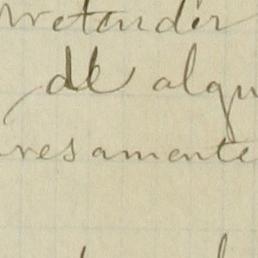 pretender
de algu
resamente